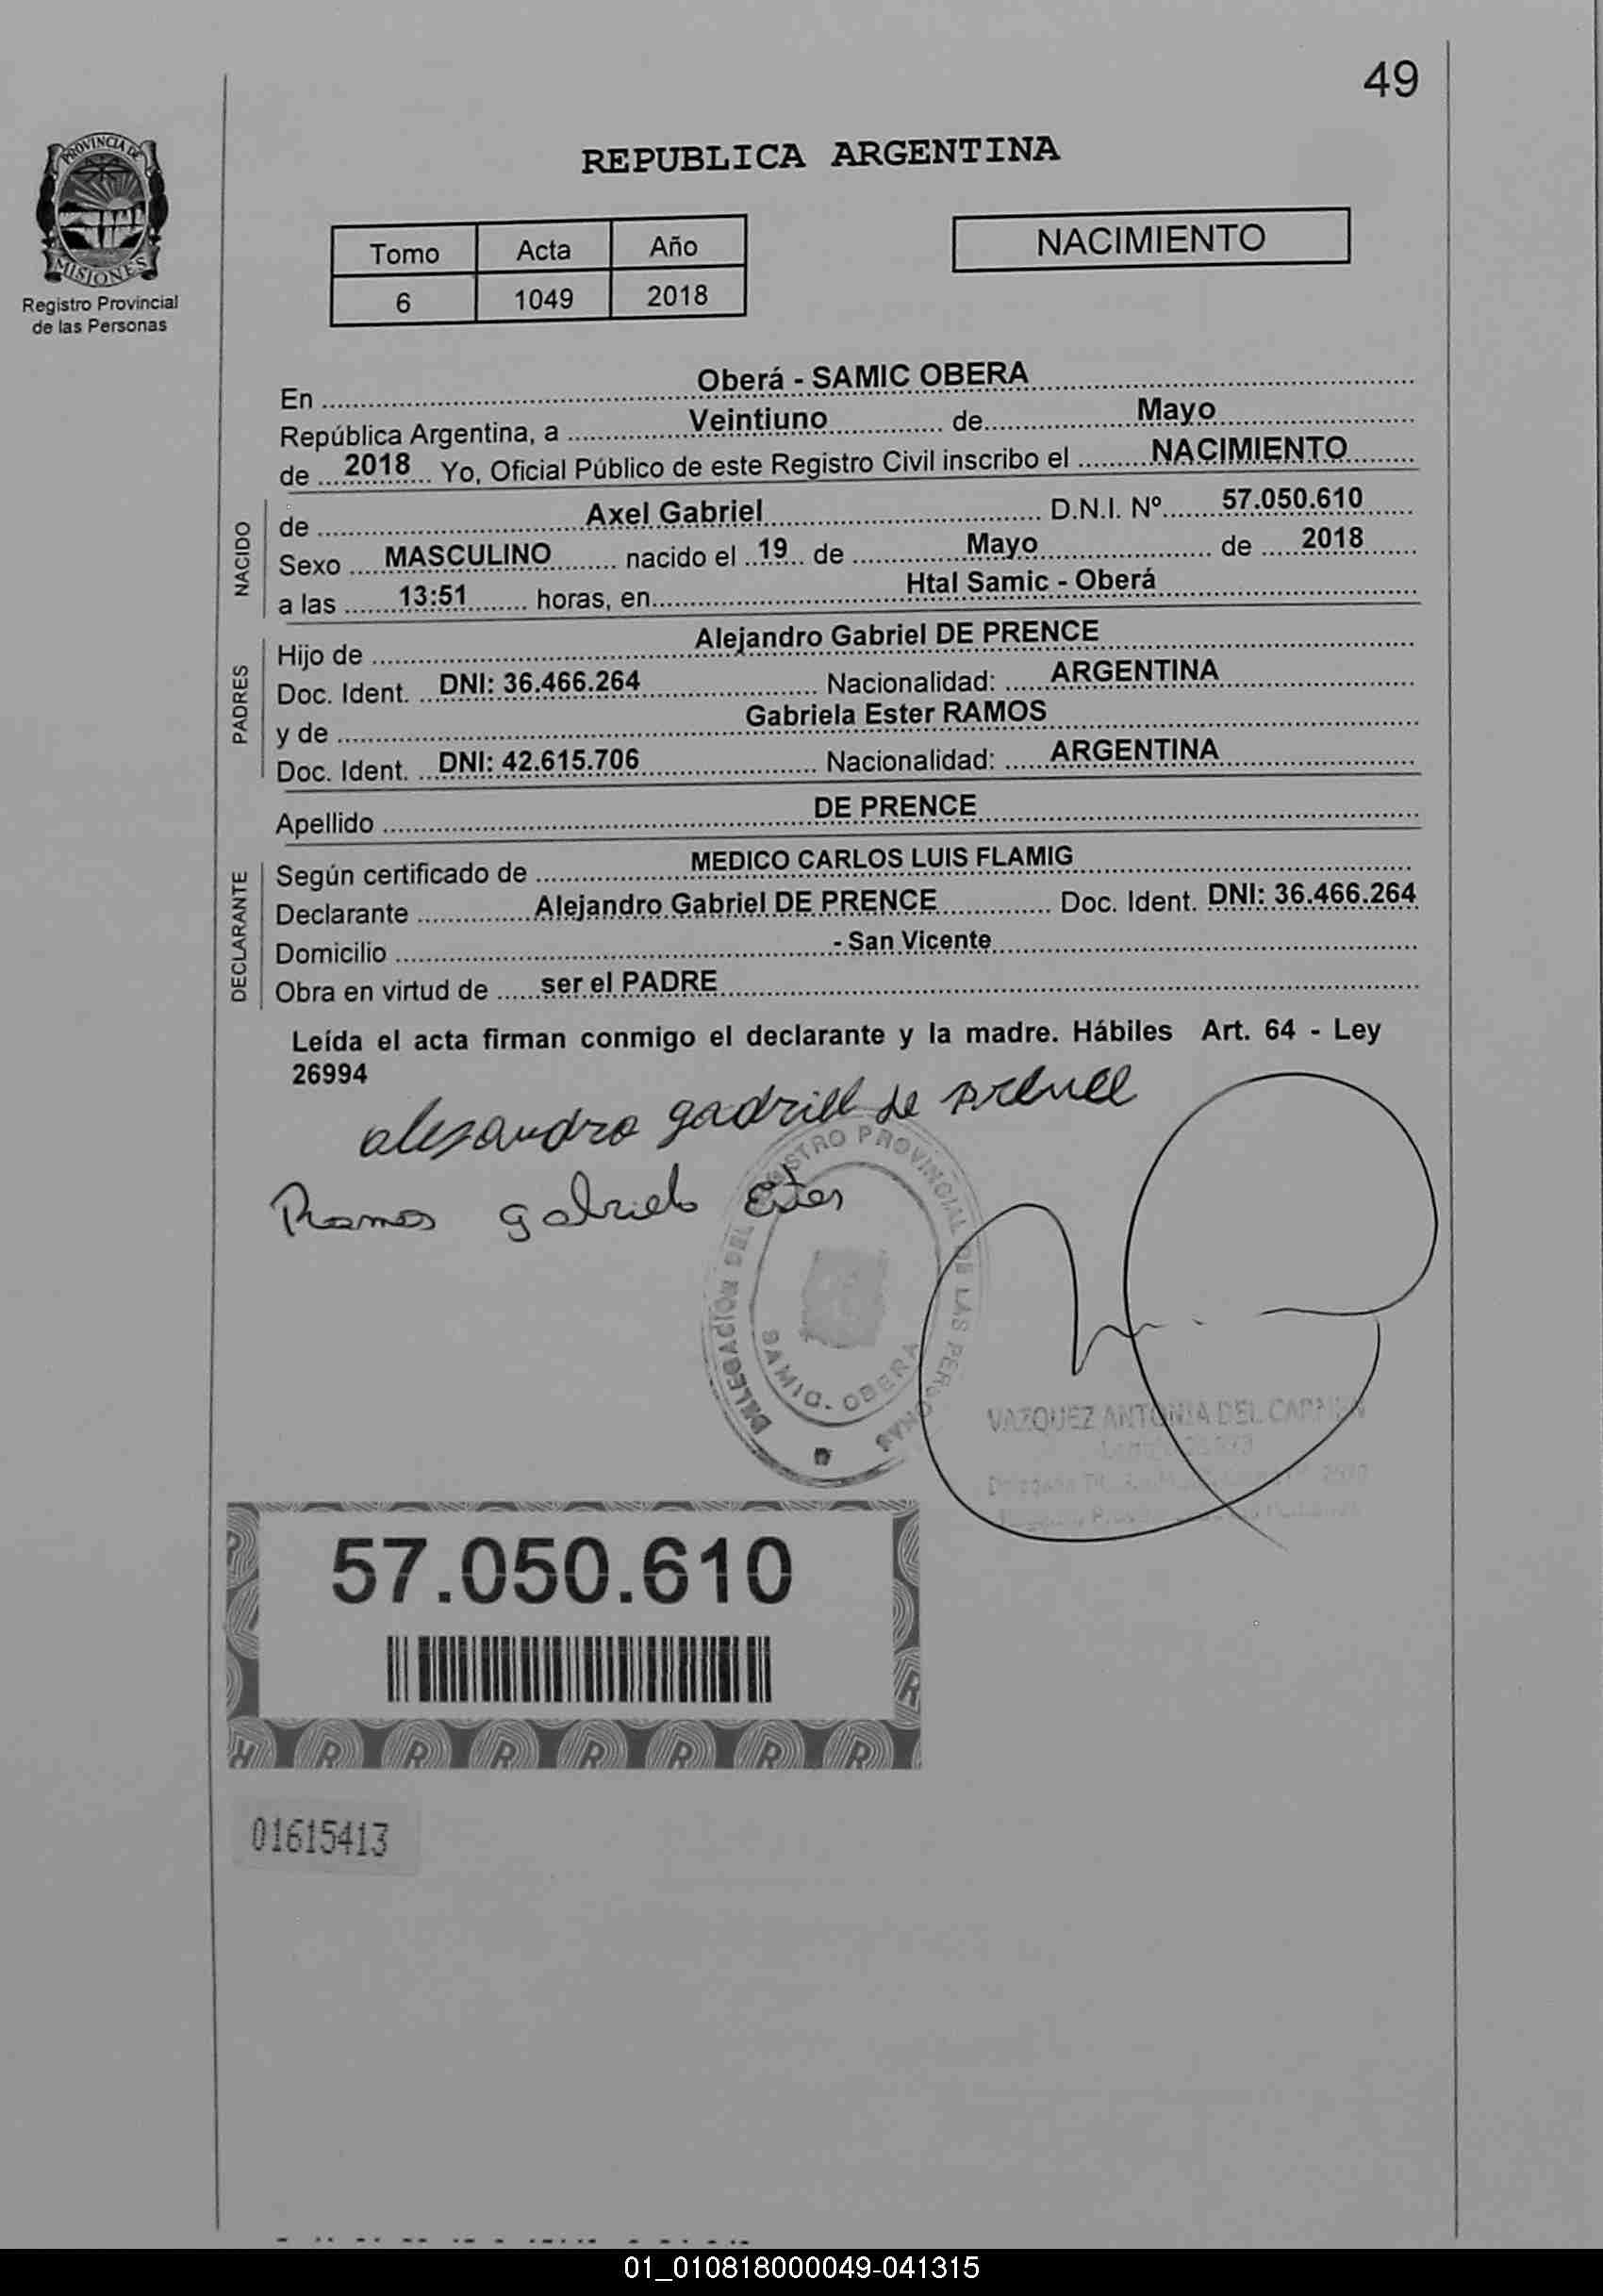 49
PROVINCIA DE
MISIONES
Registro Provincial
de las Personas
REPUBLICA ARGENTINA
Tomo Acta Año
6 1049 2018
NACIMIENTO
En Oberá - SAMIC OBERA
República Argentina, a Veintiuno de Mayo
de 2018 Yo, Oficial Público de este Registro Civil inscribo el NACIMIENTO
NACIDO
de Axel Gabriel D.N.I. Nº 57.050.610
Sexo MASCULINO nacido el 19 de Mayo de 2018
a las 13:51 horas, en Htal Samic - Oberá
PADRES
Hijo de Alejandro Gabriel DE PRENCE
Doc. Ident. DNI: 36.466.264 Nacionalidad: ARGENTINA
y de Gabriela Ester RAMOS
Doc. Ident. DNI: 42.615.706 Nacionalidad: ARGENTINA
Apellido DE PRENCE
DECLARANTE
Según certificado de MEDICO CARLOS LUIS FLAMIG
Declarante Alejandro Gabriel DE PRENCE Doc. Ident. DNI: 36.466.264
Domicilio - San Vicente
Obra en virtud de ser el PADRE
Leída el acta firman conmigo el declarante y la madre. Hábiles Art. 64 - Ley
26994
alesandro gadriel de prence
Ramos gabriela Ester
DELEGACION DEL REGISTRO PROVINCIAL DE LAS PERSONAS
SAMIC - OBERA
VAZQUEZ ANTONIA DEL CARMEN
57.050.610
R R R R R R R
01615413
01_010818000049-041315